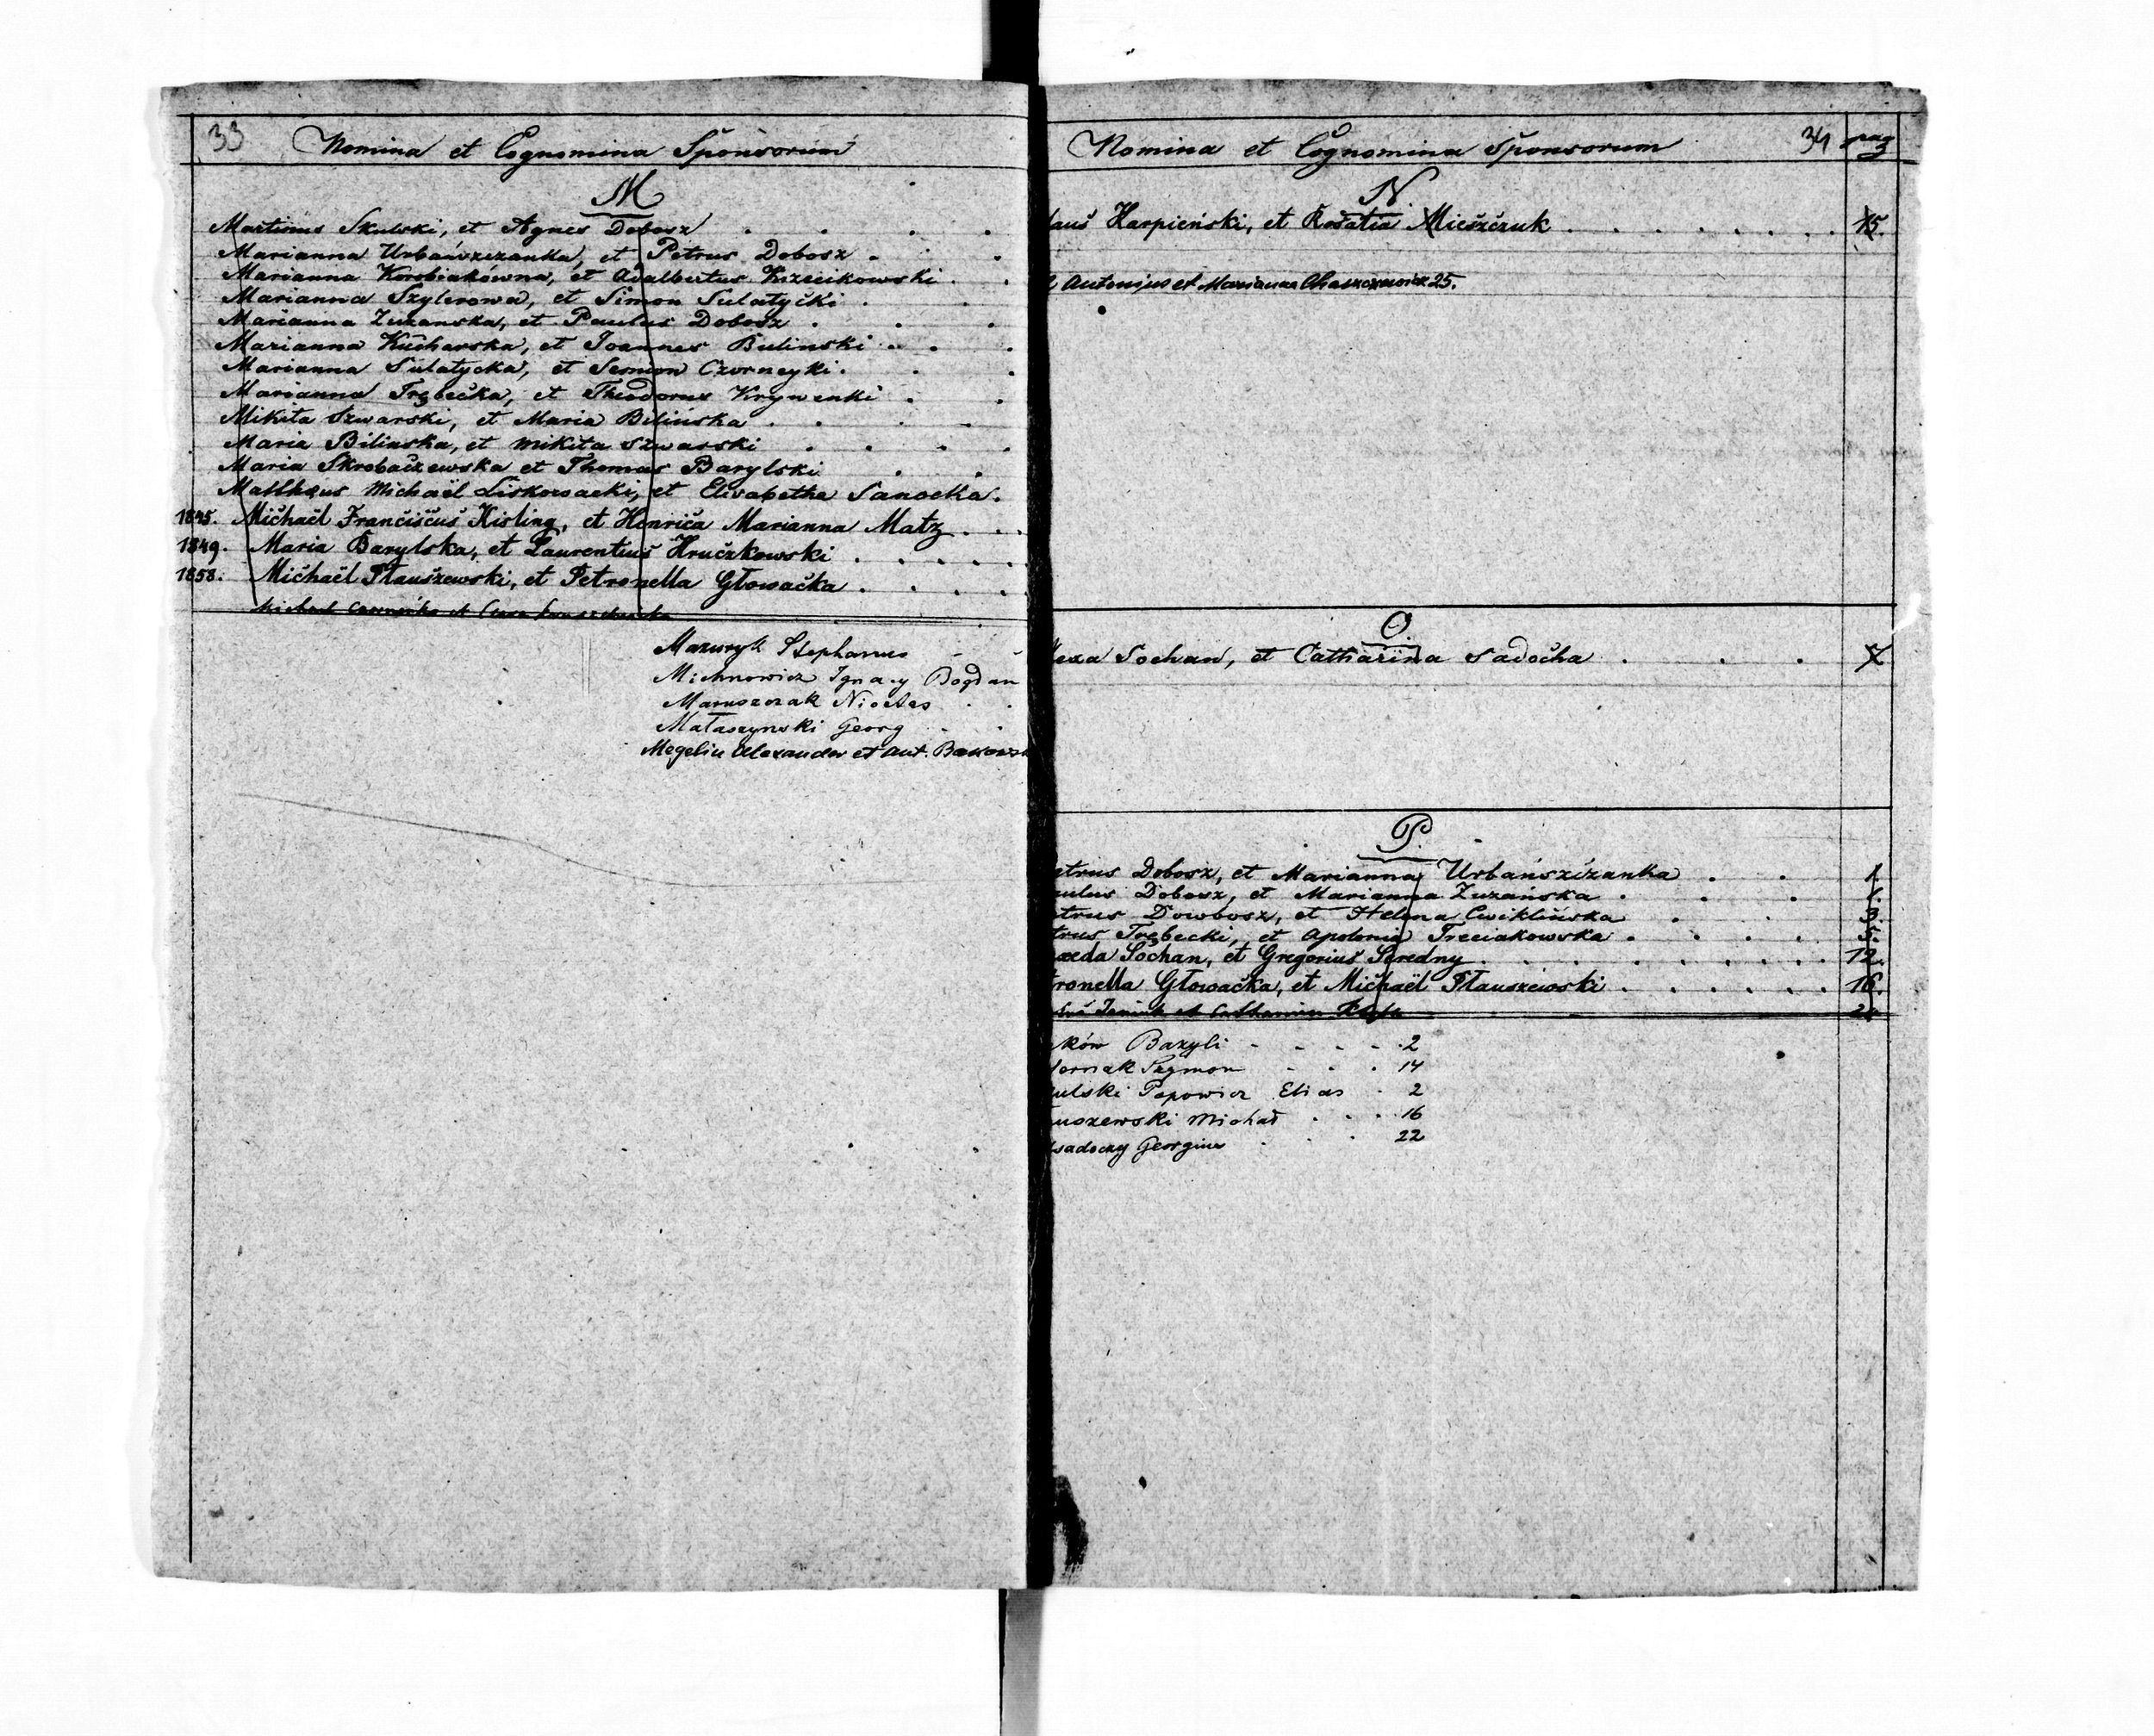 33 Nomina et Cognomina Sponsorum
M
Martinus Skulski, et Agnes Dobosz
Marianna Urbańszczanka, et Petrus Dobosz
Marianna Korobiakówna, et Adalbertus Krzecikowski
Marianna Szylerowa, et Simon Sulatycki
Marianna Zuzanska, et Paulus Dobosz
Marianna Kucharska, et Joannes Bulinski
Marianna Sulatycka, et Semion Czorneyki
Marianna Trębecka, et Theodorus Krywenki
Mikita Szwarski, et Maria Bilińska
Maria Bilinska, et Mikita Szwarski
Maria Skrobaczewska et Thomas Barylski
Matthæus Michaël Liskowacki, et Elisabetha Sanocka.
1845. Michaël Franciscus Kisling, et Henrica Marianna Matz
1849. Maria Barylska, et Laurentius Hruczkowski
1858. Michaël Ptauszewski, et Petronella Głowacka
Michael et
Mazuryk Stephanus
Michnowicz Ignacy Bogdan
Maruszczak Nicetas
Mataszynski Georg
Megeliu Alexander et Ant.
Nomina et Cognomina Sponsorum 34 pag
N
laus Karpieński, et Rosalia Mieszczuk 15.
Antonius et Marianna 25.
O.
lexa Sochan, et Catharina Sadocha 7
P.
etrus Dobosz, et Marianna Urbańszczanka 1.
aulus Dobosz, et Marianna Zuzańska 1.
etrus Dowbosz, et Helena Cwiklińska 3.
trus Trębecki, et Apolonia Treciakowska 5.
axeda Sochan, et Gregorius Seredny 12.
tronella Głowacka, et Michaël Ptauszewski 16.
et Catharina
ków Bazyli 2
Szymon 14
ulski Popowicz Elias 2
uszewski Michał 16
sadoczy Georgius 22